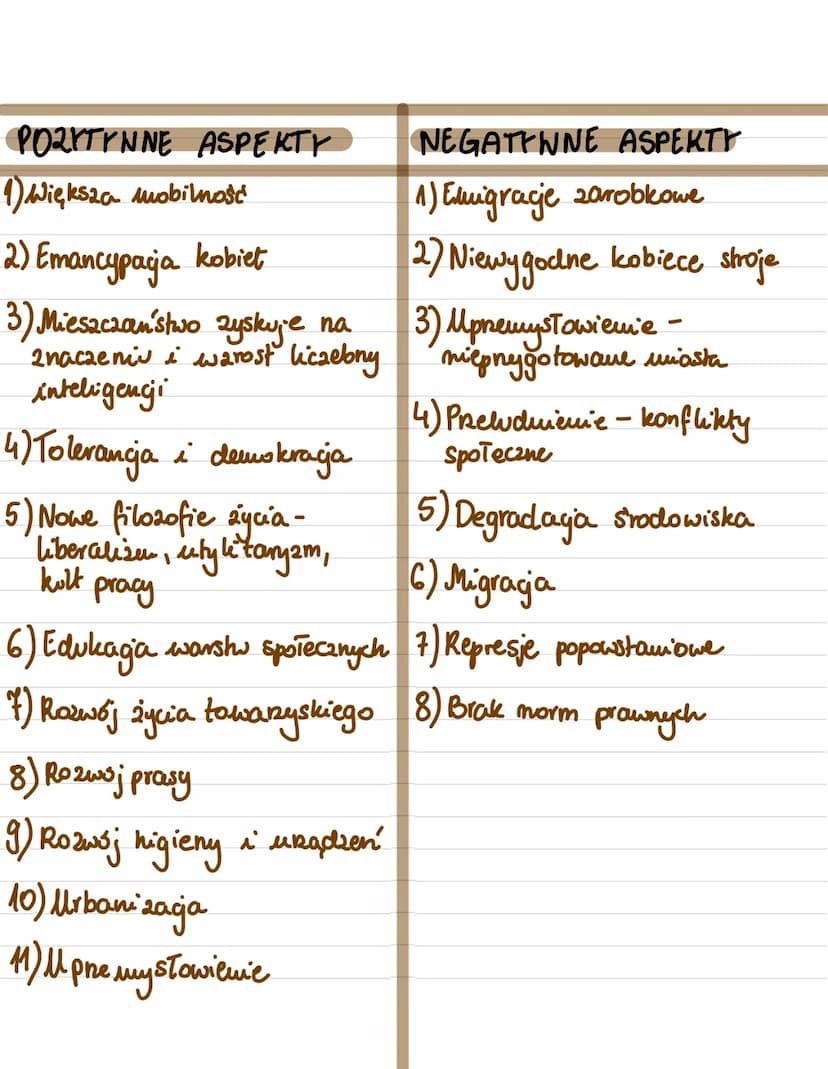 POZYTYWNE ASPEKTY
1) Większa mobilność
2) Emancypacja kobiet
3) Mieszczaństwo zyskuje na
znaczeniu i wzrost liczebny
inteligencji
4) Tolerancja i demokracja
5) Nowe filozofie życia -
liberalizm, utylitaryzm,
kult pracy
6) Edukacja warstw społecznych
7) Rozwój życia towarzyskiego
8) Rozwój prasy
9) Rozwój higieny i urządzeń
10) Urbanizacja
11) Uprzemysłowienie
NEGATYWNE ASPEKTY
1) Emigracje zarobkowe
2) Niewygodne kobiece stroje
3) Uprzemysłowienie -
nieprzygotowane miasta
4) Przeludnienie - konflikty
społeczne
5) Degradacja środowiska
6) Migracja
7) Represje popowstaniowe
8) Brak norm prawnych